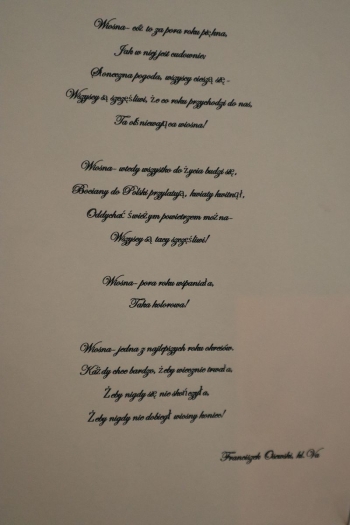 Wiosna- cóż to za pora roku piękna,
Jak w niej jest cudownie:
Słoneczna pogoda, wszyscy cieszą się -
Wszyscy są szczęśliwi, że co roku przychodzi do nas,
Ta olśniewająca wiosna!
Wiosna- wtedy wszystko do życia budzi się,
Bociany do Polski przylatują, kwiaty kwitną,
Oddychać świeżym powietrzem można-
Wszyscy są tacy szczęśliwi!
Wiosna- pora roku wspaniała,
Taka kolorowa!
Wiosna- jedna z najlepszych roku okresów.
Każdy chce bardzo, żeby wiecznie trwała,
Żeby nigdy się nie skończyła,
Żeby nigdy nie dobiegł wiosny koniec!
Franciszek kl. Va